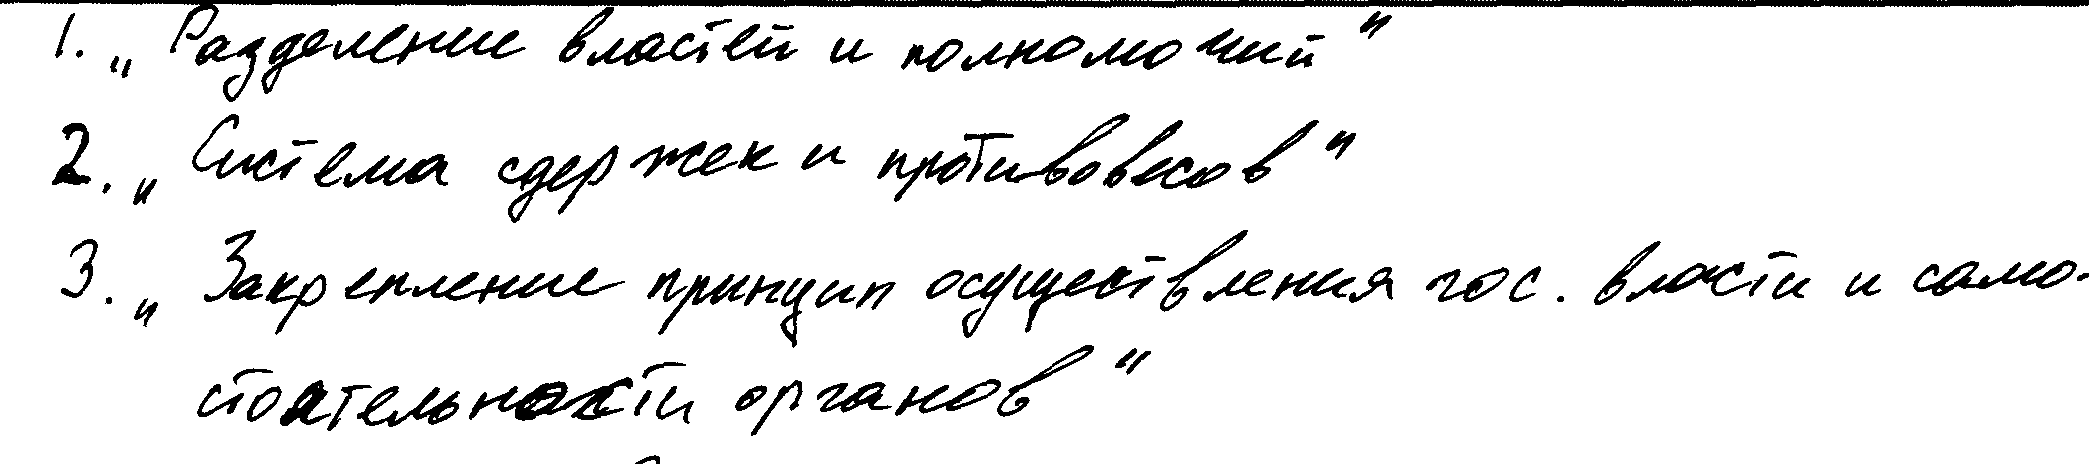 1. „Разделение властей и полномочий"
2. „Система сдержек и противовесов"
3. „Закрепление принцип осуществления гос. власти и само-
стоятельности органов"